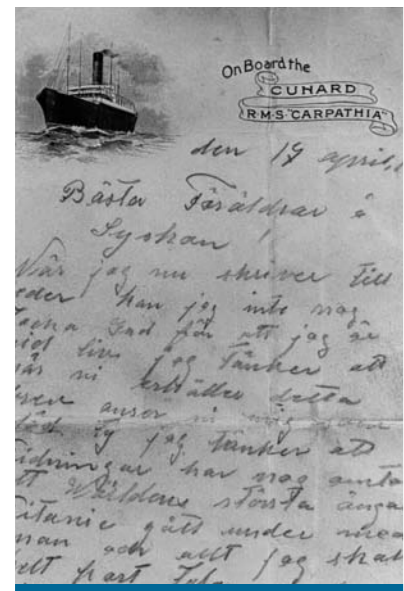 On Board the
CUNARD
R·M·S·"CARPATHIA"
den 19 april,
Bästa Föräldrar å
Syskon!
När jag nu skriver till
eder kan jag inte nog
tacka Gud för att jag är
vid liv. jag tänker att
när ni erhåller detta
anser ni mig som
död. Ty jag tänker att
Tidningar har nog omta
att Världens största ånga
Titanic gått under med
man och allt jag skall
helt kort